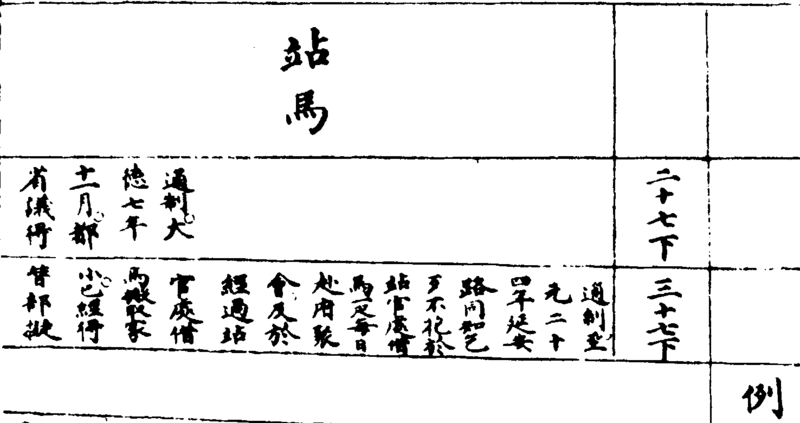 例
二十七下
三十七下
站馬
通制大
德七年
十一月都
省議得
通制至
元二十
四年延安
路同知乞
歹不花於
站官處借
馬一疋每日
赴府聚
會及於
經過站
官處借
馬馱取家
小已經得
部擬